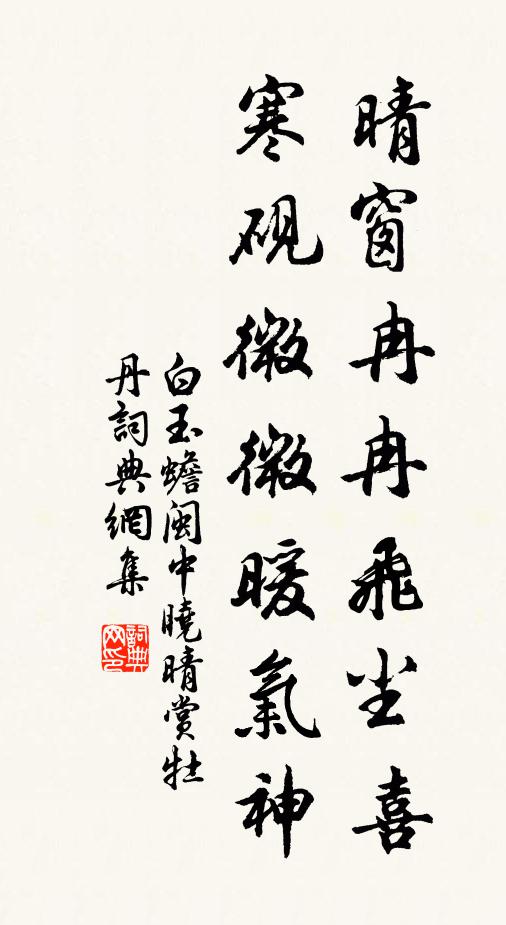 晴窗冉冉飛尘喜
寒硯微微暖氣神
白玉蟾閩中曉晴赏牡
丹詞典網集
詞典
网印